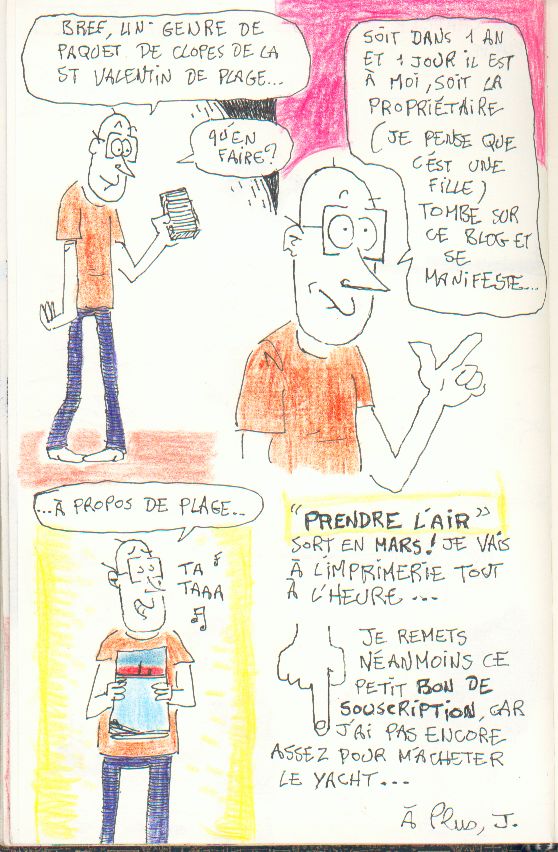 BREF, UN GENRE DE
PAQUET DE CLOPES DE LA
ST VALENTIN DE PLAGE...
QU'EN
FAIRE?
SOIT DANS 1 AN
ET 1 JOUR IL EST
À MOI, SOIT LA
PROPRIÉTAIRE
(JE PENSE QUE
C'EST UNE
FILLE)
TOMBE SUR
CE BLOG ET
SE
MANIFESTE...
...À PROPOS DE PLAGE...
TA
TAAA
"PRENDRE L'AIR"
SORT EN MARS! JE VAIS
À L'IMPRIMERIE TOUT
À L'HEURE...
JE REMETS
NÉANMOINS CE
PETIT BON DE
SOUSCRIPTION, CAR
J'AI PAS ENCORE
ASSEZ POUR M'ACHETER
LE YACHT...
À Plus, J.